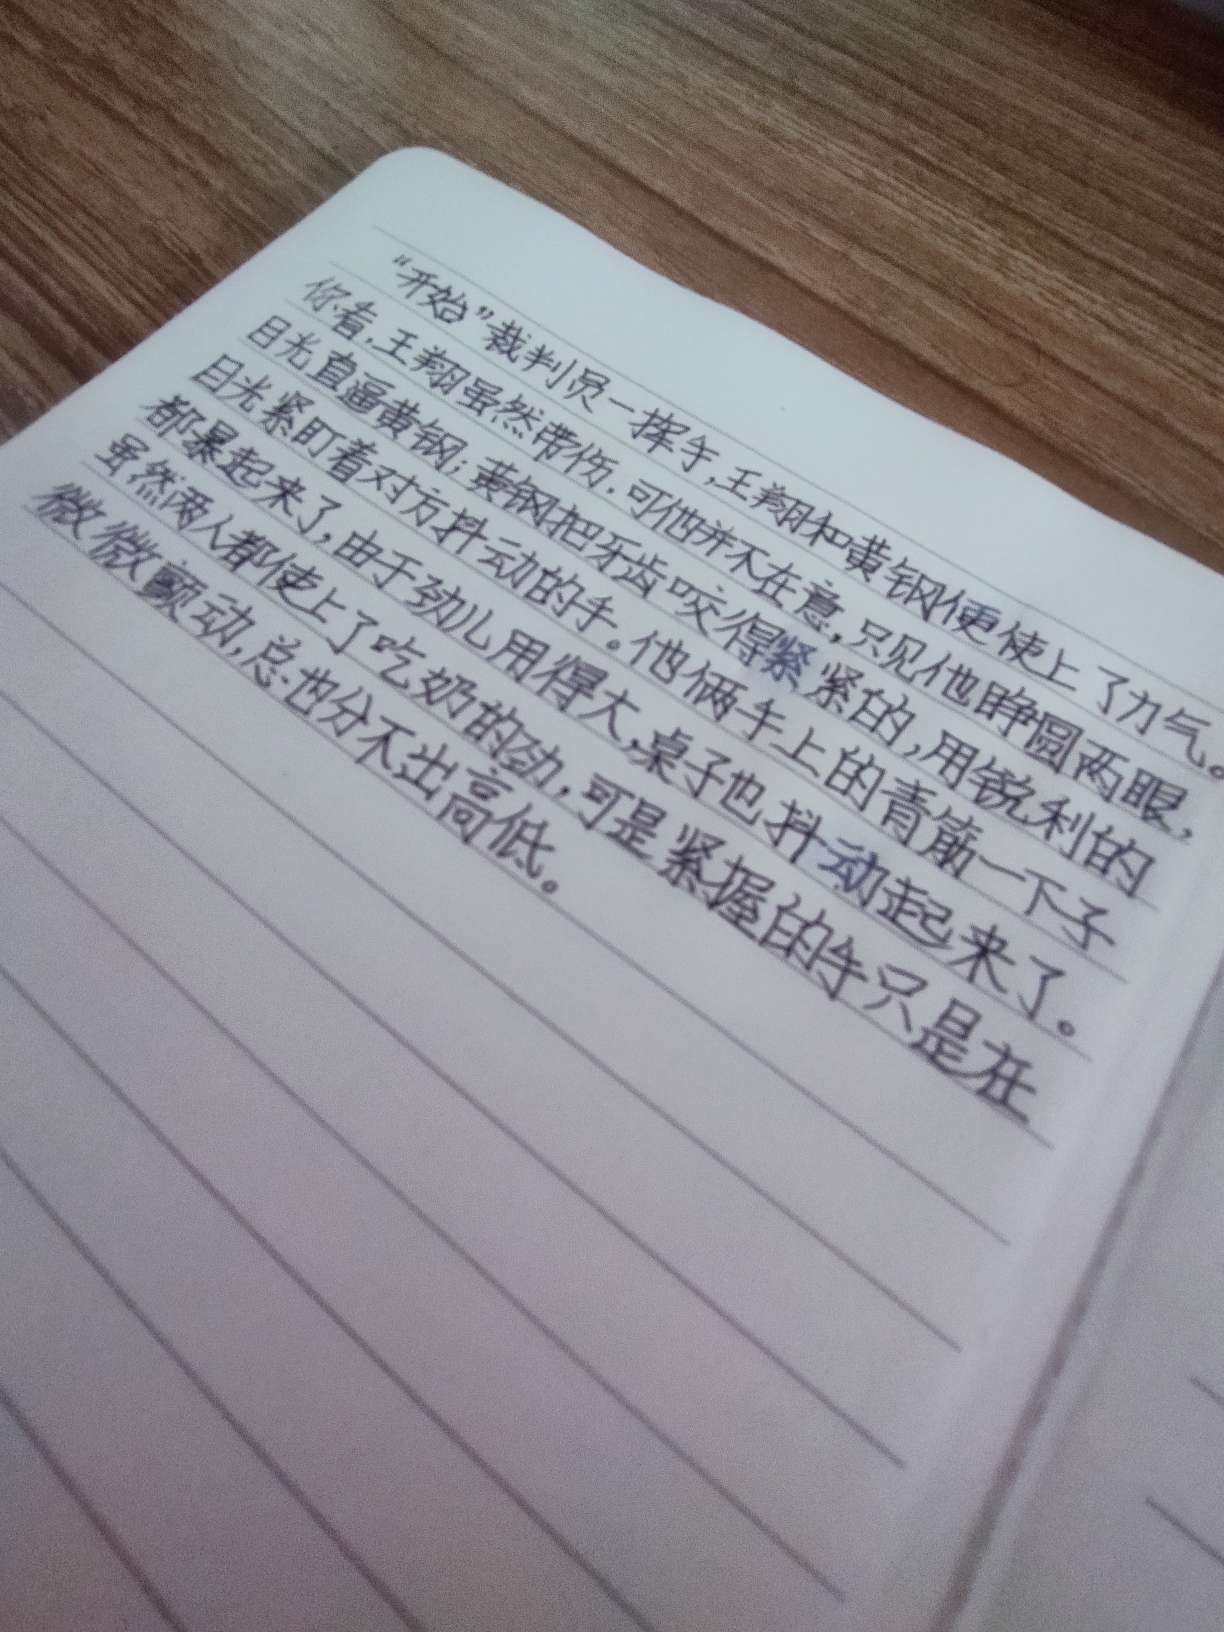 “开始”裁判员一挥手,王翔和黄钢便使上了力气。
你看,王翔虽然带伤,可他并不在意,只见他睁圆两眼,
目光直逼黄钢;黄钢把牙齿咬得紧紧的,用锐利的
目光紧盯着对方抖动的手。他俩手上的青筋一下子
都暴起来了,由于劲儿用得大,桌子也抖动起来了。
虽然两人都使上了吃奶的劲,可是紧握的手只是在
微微颤动,总也分不出高低。